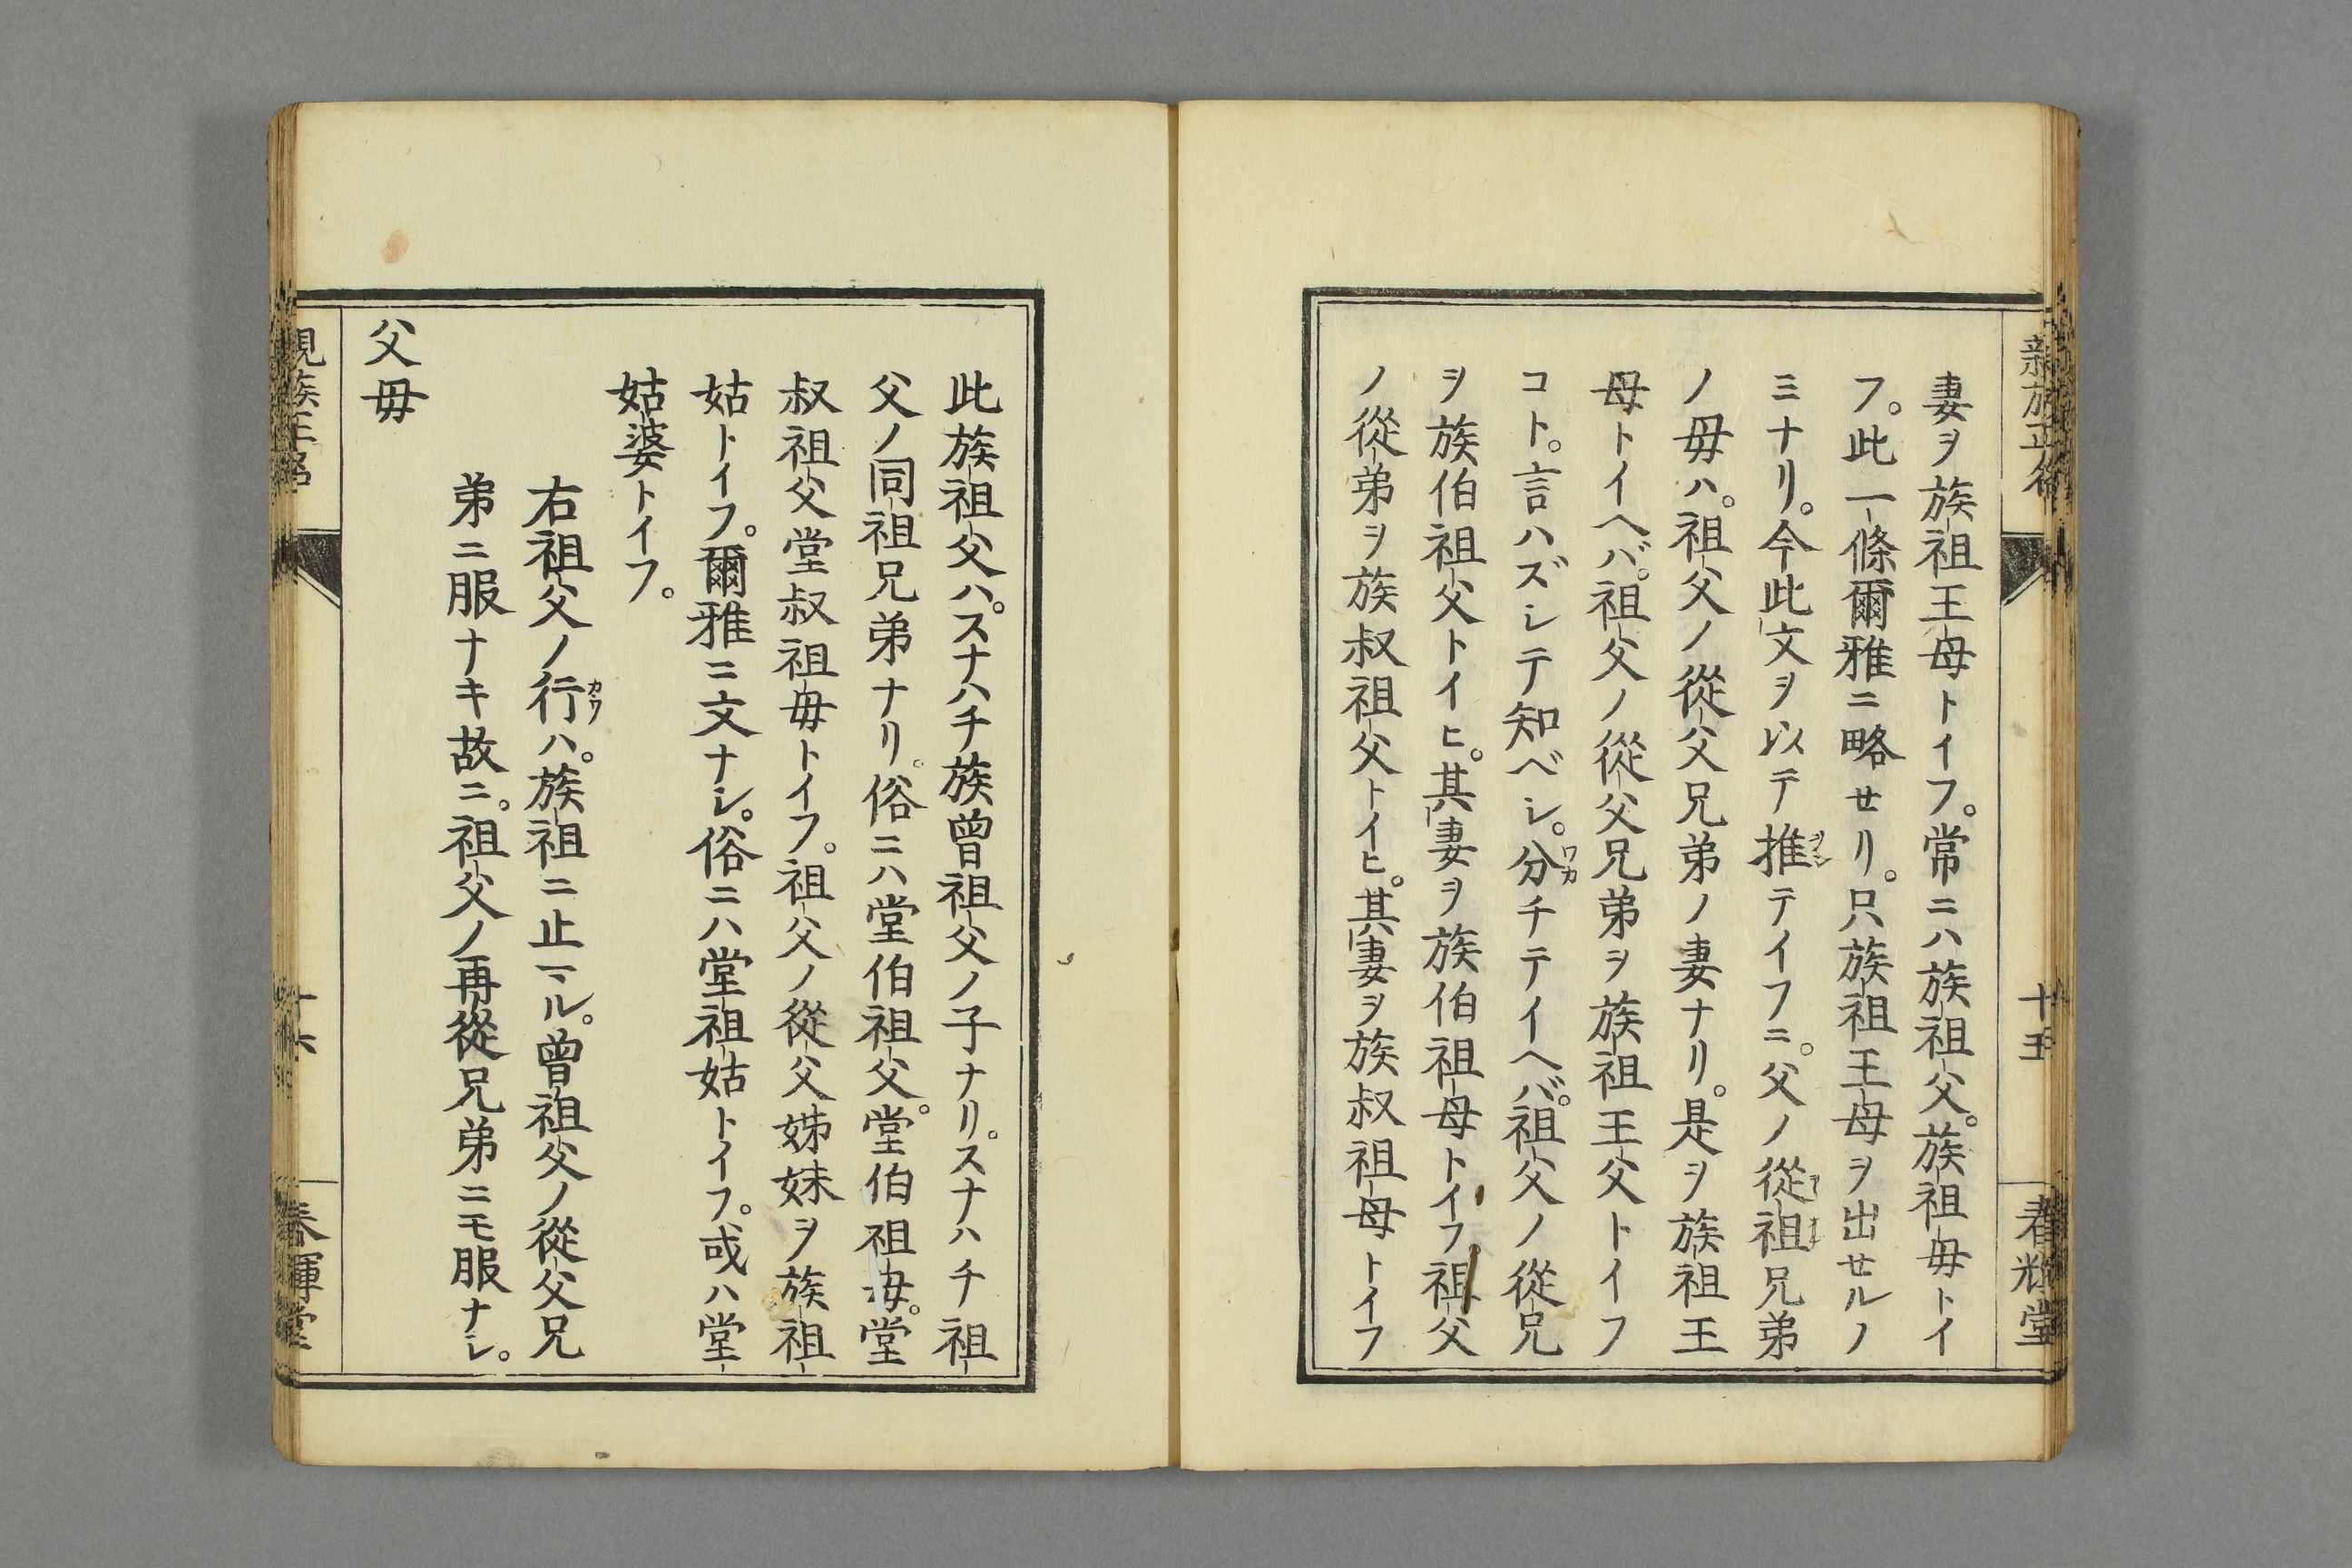 妻ヲ族祖王母トイフ。常ニハ族祖父。族祖毋トイ
フ。此一條爾雅ニ略セリ。只族祖王母ヲ出セルノ
ミナリ。今此文ヲ以テ推テイフニ。父ノ從祖兄弟
ノ毋ハ。祖父ノ從父兄弟ノ妻ナリ。是ヲ族祖王
母トイヘバ。祖父ノ從父兄弟ヲ族祖王父トイフ
コト。言ハズシテ知ベシ。分チテイヘバ。祖父ノ從兄
ヲ族伯祖父トイヒ。其妻ヲ族伯祖母トイフ祖父
ノ從弟ヲ族叔祖父トイヒ。其妻ヲ族叔祖母トイフ
十五
春輝堂
此族祖父ハ。スナハチ族曾祖父ノ子ナリ。スナハチ祖
父ノ同祖兄弟ナリ。俗ニハ堂伯祖父。堂伯祖毋。堂
叔祖父堂叔祖毋トイフ。祖父ノ從父姊妹ヲ族祖
姑トイフ。爾雅ニ文ナシ。俗ニハ堂祖姑トイフ。或ハ堂
姑婆トイフ。
右祖父ノ行ハ。族祖ニ止マル。曾祖父ノ從父兄
弟ニ服ナキ故ニ。祖父ノ再從兄弟ニモ服ナシ。
父毋
十六
春輝堂